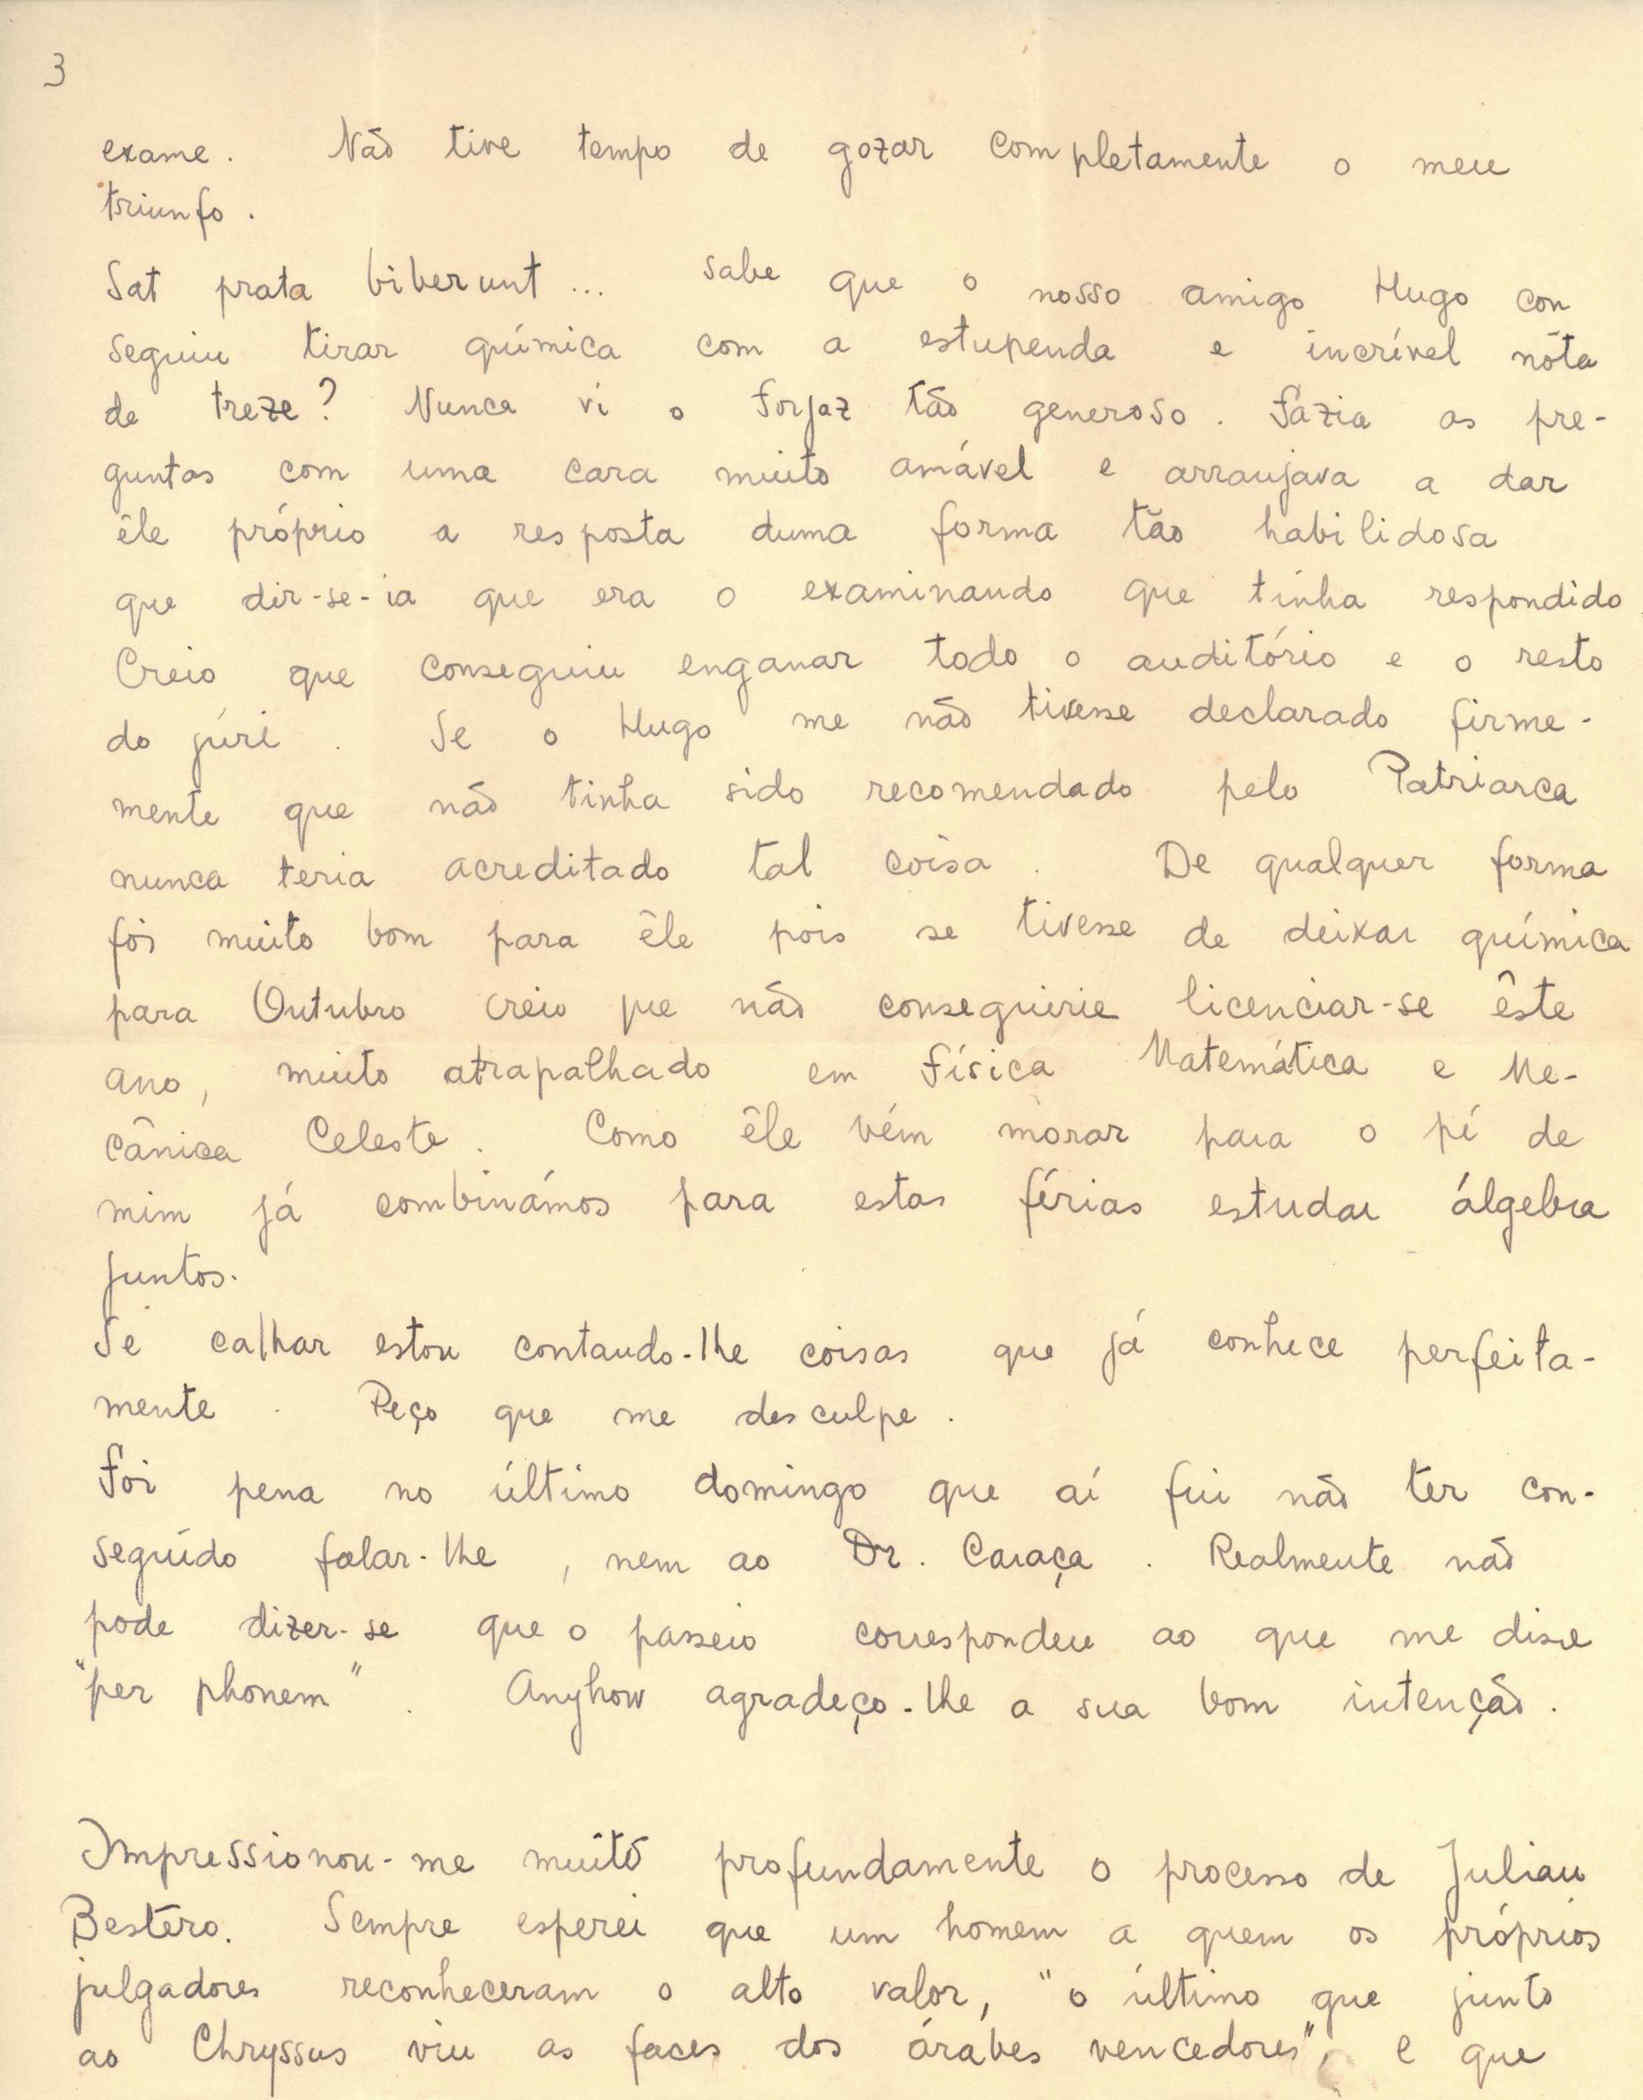 3
exame. Não tive tempo de gozar completamente o meu
triunfo.
Sat prata biberunt... Sabe que o nosso amigo Hugo con
seguiu tirar química com a estupenda e incrível nóta
de treze? Nunca vi o Forjaz tão generoso. Fazia as pre-
guntas com uma cara muito amável e arranjava a dar
êle próprio a resposta duma forma tão habilidosa
que dir-se-ia que era o examinando que tinha respondido.
Creio que conseguiu enganar todo o auditório e o resto
do júri. Se o Hugo me não tivesse declarado firme-
mente que não tinha sido recomendado pelo Patriarca
nunca teria acreditado tal coisa. De qualquer forma
foi muito bom para êle pois se tivesse de deixar química
para Outubro creio que não conseguirie licenciar-se êste
ano, muito atrapalhado em Física Matemática e Me-
cânica Celeste. Como êle vém morar para o pé de
mim já combinámos para estas férias estudar álgebra
juntos.
Se calhar estou contando-lhe coisas que já conhece perfeita-
mente. Peço que me desculpe.
Foi pena no último domingo que aí fui não ter con-
seguido falar-lhe, nem ao Dr. Caraça. Realmente não
pode dizer-se que o passeio correspondeu ao que me disse
"per phonem". Anyhow agradeço-lhe a sua bom intenção.
Impressionou-me muito profundamente o processo de Julian
Bestero. Sempre esperei que um homem a quem os próprios
julgadores reconheceram o alto valor, "o último que junto
ao Chryssus viu as faces dos árabes vencedores", e que